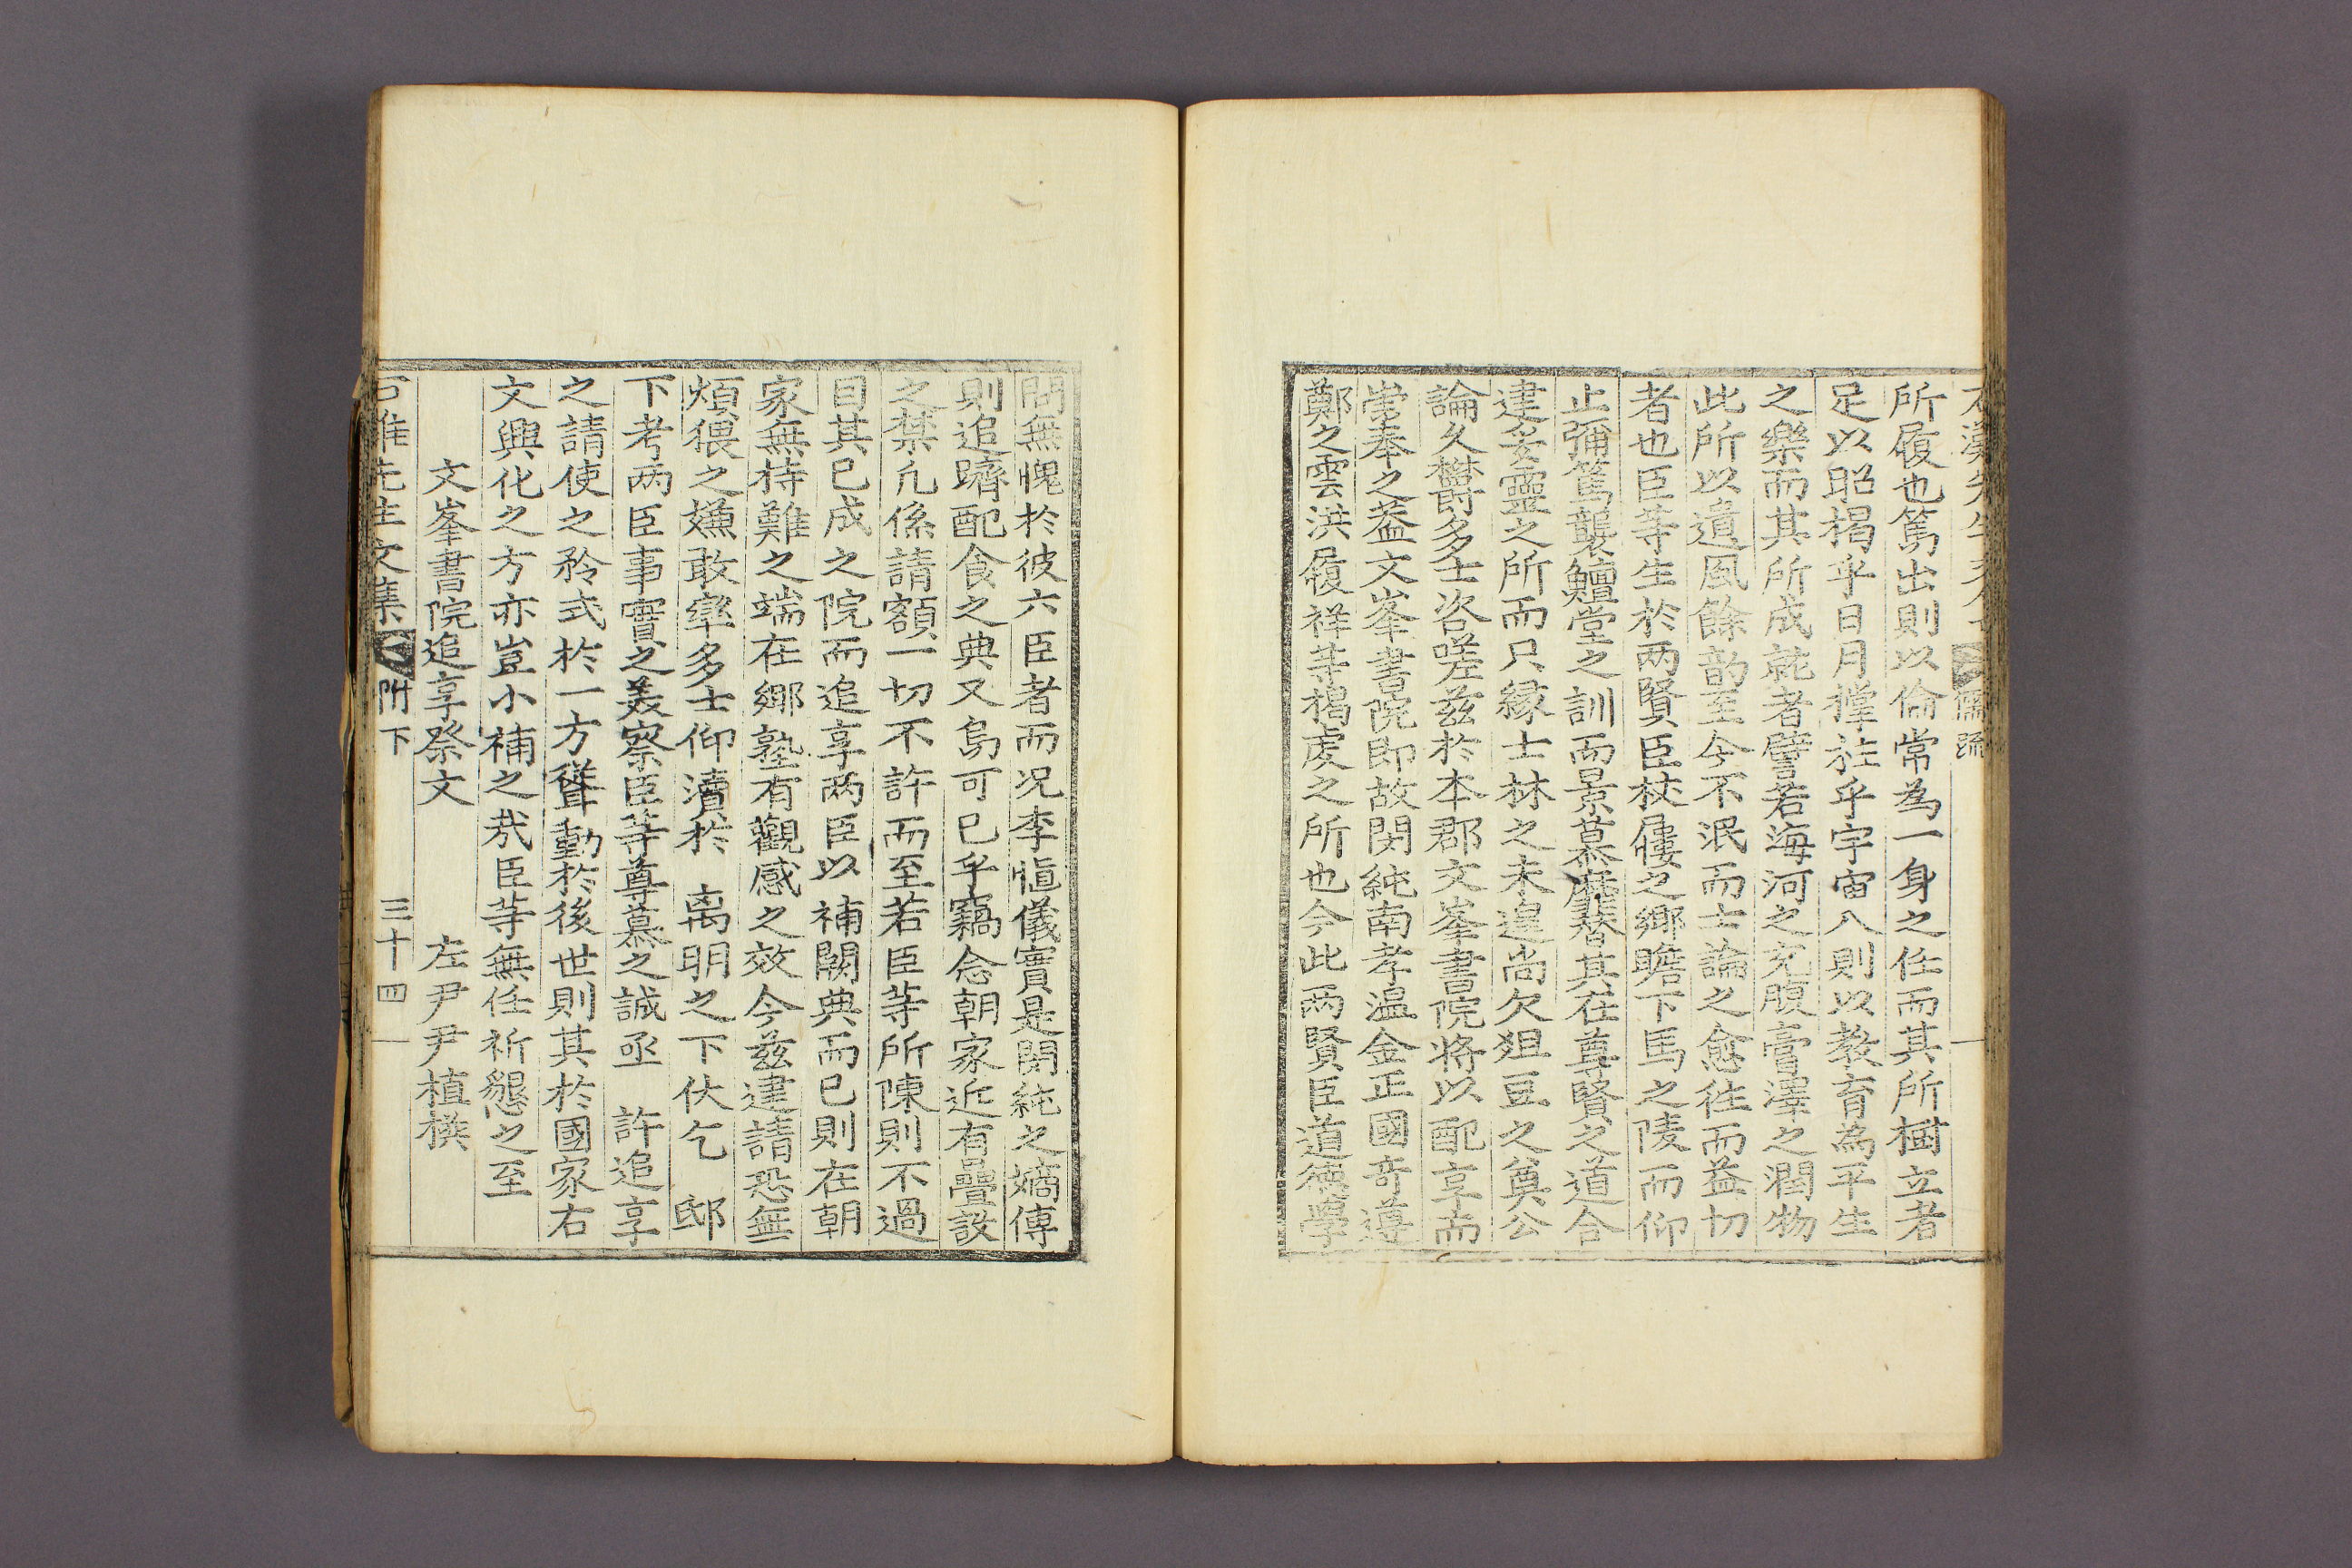 儒疏
所履也篤出則以倫常為一身之任而其所樹立者
足以昭揭乎日月撑柱乎宇宙入則以教育為平生
之樂而其所成就者譬若海河之充腹膏澤之潤物
此所以遺風餘韵至今不泯而士論之愈徃而益切
者也臣等生於两賢臣杖屨之鄉瞻下馬之陵而仰
止彌篤襲鱣堂之訓而景慕靡替其在尊賢之道合
建妥靈之所而只縁士林之未遑尚欠俎豆之奠公
論久欝多士咨嗟玆於本郡文峯書院将以配享而
崇奉之葢文峯書院即故閔純南孝温金正國竒遵
鄭之雲洪履祥等揭虔之所也今此两賢臣道德學
問無愧於彼六臣者而况李愼儀實是閔純之嫡傳
則追躋配食之典又烏可已乎竊念朝家近有疊設
之禁凢係請額一切不許而至若臣等所陳則不過
因其已成之院而追享两臣以補闕典而已則在朝
家無持難之端在鄉塾有觀感之效今玆建請恐無
煩猥之嫌敢率多士仰瀆於 离明之下伏乞 邸
下考两臣事實之美察臣等尊慕之誠亟 許追享
之請使之矜式於一方聳動於後世則其於國家右
文興化之方亦豈小補之㢤臣等無任祈懇之至
文峯書院追享祭文 左尹尹植撰
先生文集 附下 三十四